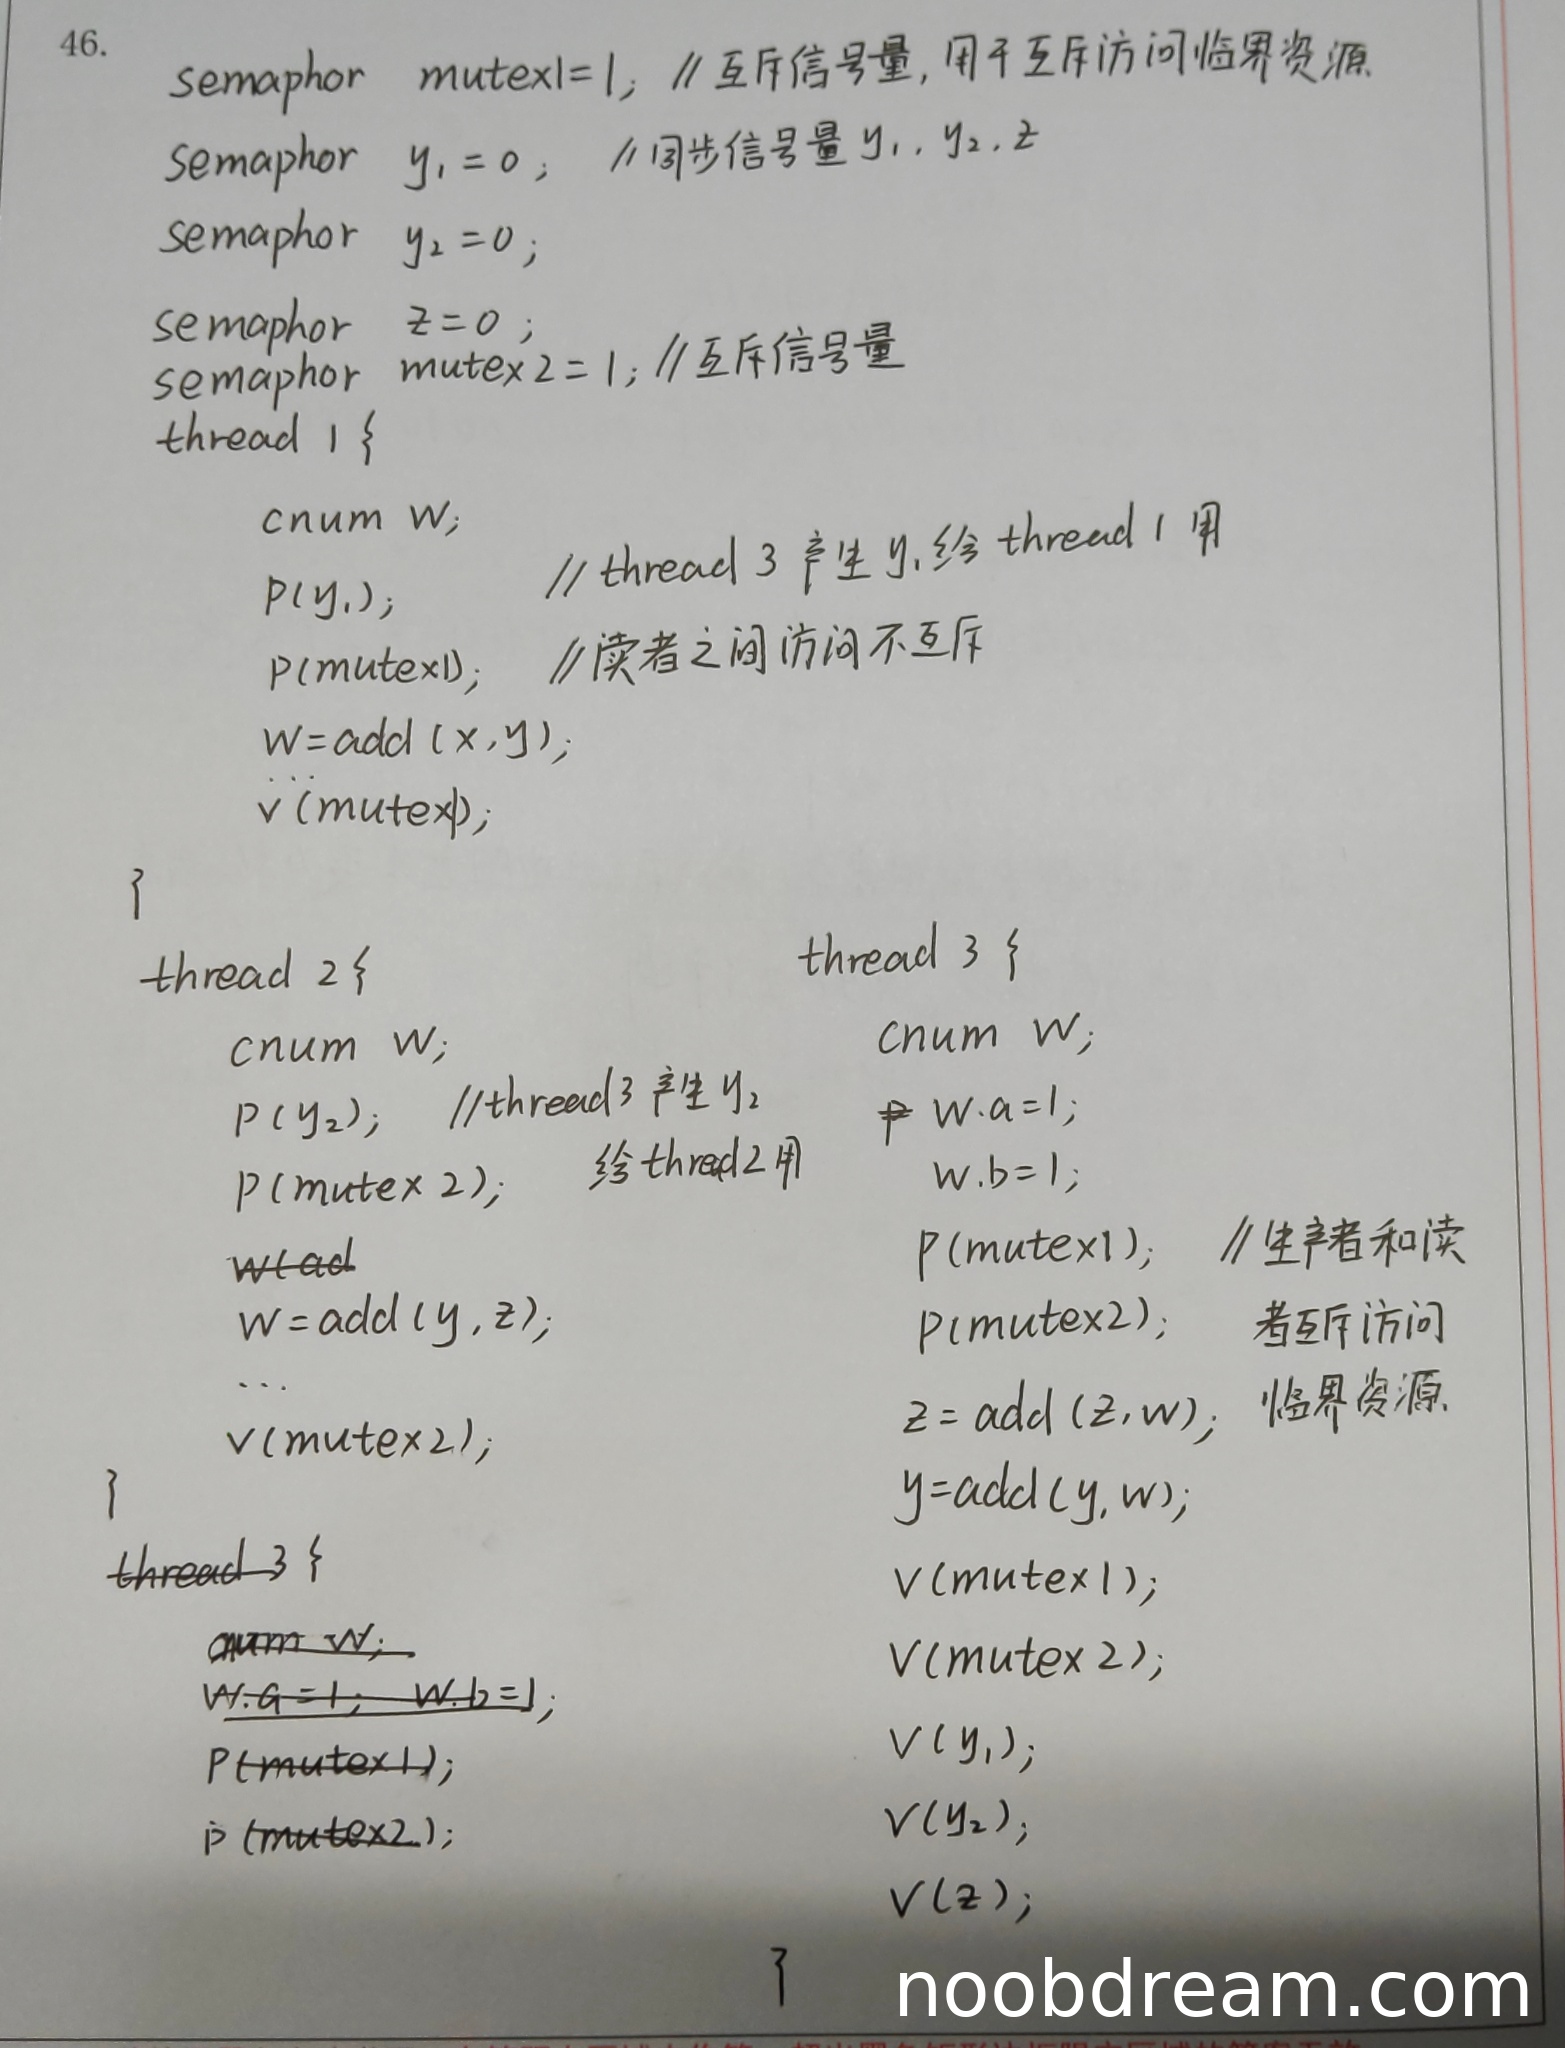 46.
semaphor mutex1=1; //互斥信号量,用于互斥访问临界资源
semaphor y₁=0; //同步信号量 y₁、y₂、z
semaphor y₂=0;
semaphor z=0;
semaphor mutex2=1; //互斥信号量
thread 1{
cnum w;
P(y₁); //thread 3 产生y₁给 thread 1 用
P(mutex1); //读者之间访问不互斥
w=add(x,y);
...
v(mutex1);
}
thread 2{
cnum w;
P(y₂); //thread3 产生y₂
给thread2用
P(mutex2);
w(ad
w=add(y,z);
...
v(mutex2);
}
thread 3{
cnum w;
w.a=1; w.b=1;
P(mutex1);
P(mutex2);
thread 3{
cnum w;
P w.a=1;
w.b=1;
P(mutex1); //生产者和读
P(mutex2); 者互斥访问
z=add(z,w); 临界资源
y=add(y,w);
v(mutex1);
v(mutex2);
v(y₁);
v(y₂);
v(z);
}
noobdream.com